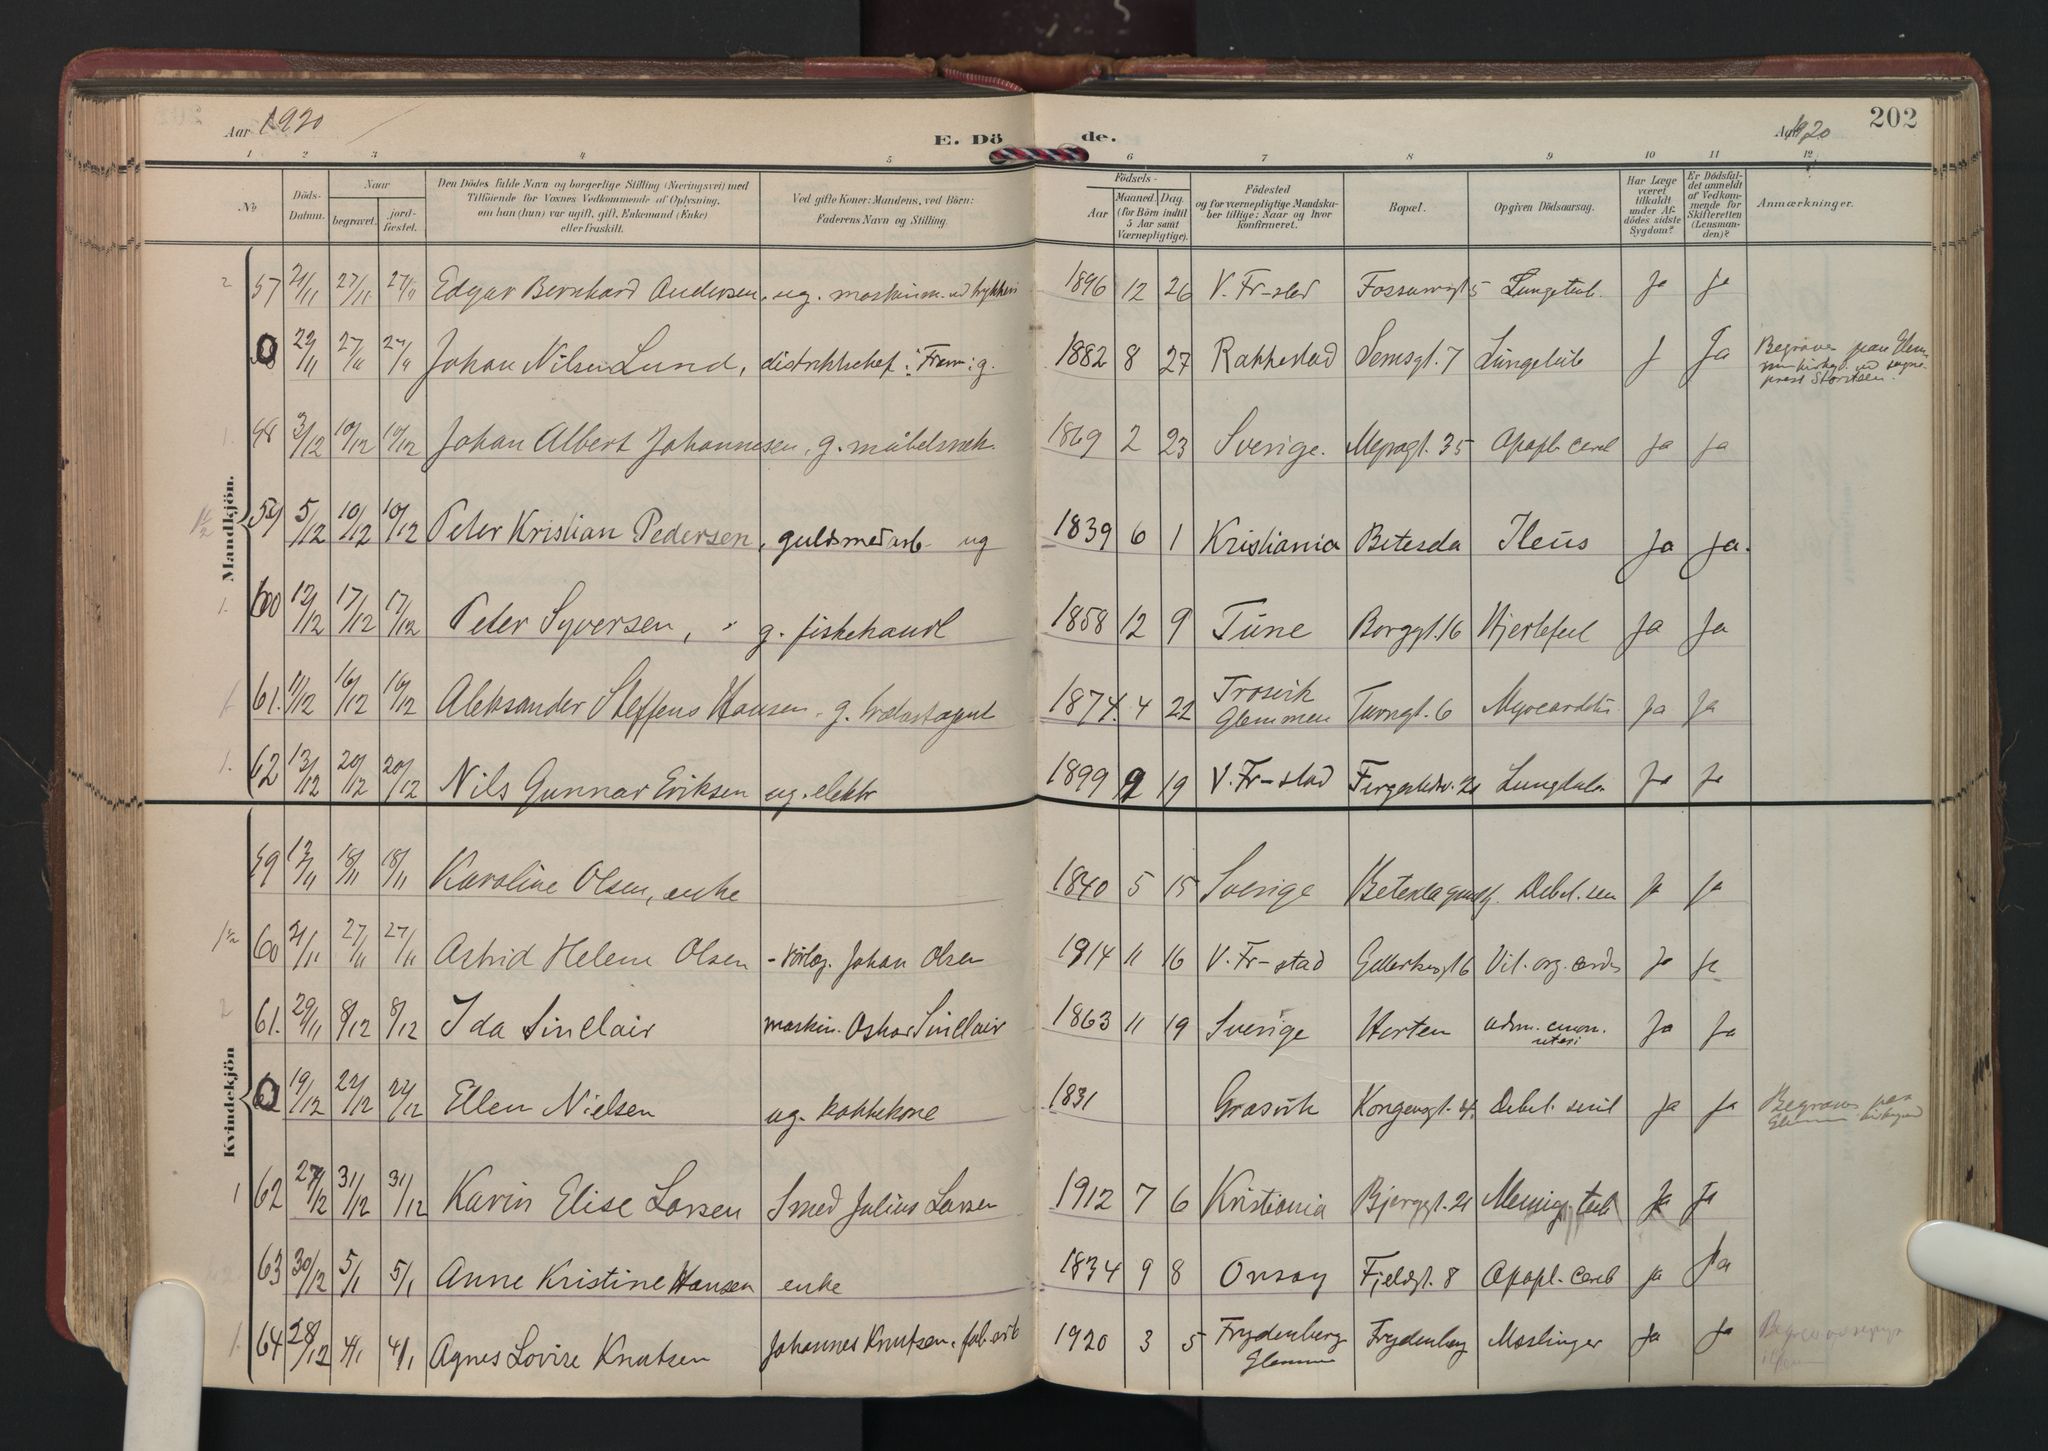 Aar 1920
E. Döde.
Aar 1920
202
1 2 3 4 5 6 7 8 9 10 11 12
No
Döds-Datum.
Naar
begravet.
jord-fæstet.
Den Dödes fulde Navn og borgerlige Stilling (Næringsvei) med
Tilföiende for Voxnes Vedkommende af Oplysning,
om han (hun) var ugift, gift, Enkemand (Enke)
eller fraskilt.
Ved gifte Koner: Mandens, ved Börn:
Faderens Navn og Stilling.
Födsels-
Aar
Maaned. Dag.
(for Börn indtil
5 Aar samt
Værnepligtige).
Födested
og for værnepligtige Mandska-
ber tillige: Naar og hvor
konfirmeret.
Bopæl.
Opgiven Dödsaarsag.
Har Læge
været
tilkaldt
under Af-
dödes sidste
Sygdom?
Er Dödsfal-
det anmeldt
af Vedkom-
mende for
Skifteretten
(Lensman-
den)?
Anmærkninger.
Mandkjön.
2 57 21/11 27/11 27/11 Edgar Bernhard Andersen, ug. maskinm. ved trykkeri 1896 12 26 V. Fr-stad 5 Lungetub. Ja Ja
0 22/11 27/11 27/11 Johan Nilsen Lund, distriktschef i "Fram" g. 1882 8 27 Rakkestad Semsgt. 7 Lungetub J Ja Begraves paa Glem-
men kirkeg. ved sogne-
prest
1. 58 3/12 10/12 10/12 Johan Albert Johannesen, g. møbelsnek. 1869 2 23 Sverige. 35 Apopl. cereb Ja Ja
1/2 59 5/12 10/12 10/12 Peter Kristian Pedersen, guldsmedarb. ug 1839 6 1 Kristiania Betesda Ileus Ja Ja.
1. 60 12/12 17/12 17/12 Peter Syversen, g. fiskehandl 1858 12 9 Tune Borggt. 16 Hjertefeil Ja Ja
1 61. 11/12 16/12 16/12 Aleksander Steffens Hansen, g. 1874. 4 22 Trosvik
Glemmen Turngt. 6 Ja Ja
1. 62 13/12 20/12 20/12 Nils Gunnar Eriksen ug. elektr 1899 9 19 V. Fr-stad Ja Ja
Kvindekjön
59 13/11 18/11 18/11 Karoline Olsen, enke 1840 5 15 Sverige Debil. sen Ja Ja
60 21/11 27/11 27/11 Astrid Helene Olsen Johan Olsen 1914 11 16 V. Fr-stad 6 Vit. org. cordis Ja Ja
2 61. 29/11 8/12 8/12 Ida Sinclair maskin. Oskar Sinclair 1863 11 19 Sverige Horten
uteri Ja Ja
0 19/12 22/12 22/12 Ellen Nielsen ug. kokkekone 1831 Gresvik Kongensgt. 4. Debil. senil Ja Ja Begraves paa
Glemmen kirkegaard
1 62 27/12 31/12 31/12 Karin Elise Larsen Smed Julius Larsen 1912 7 6 Kristiania Bjerggt. 21 Mening. tub Ja Ja
63 30/12 5/1 5/1 Anne Kristine Hansen enke 1834 9 8 Onsøy Fjeldgt. 8 Apopl. cereb Ja Ja
1. 64 28/12 4/1 4/1 Agnes Lovise Knutsen Johannes Knutsen, fab. arb 1920 3 5 Frydenberg
Glemmen Frydenberg Meslinger Ja Ja